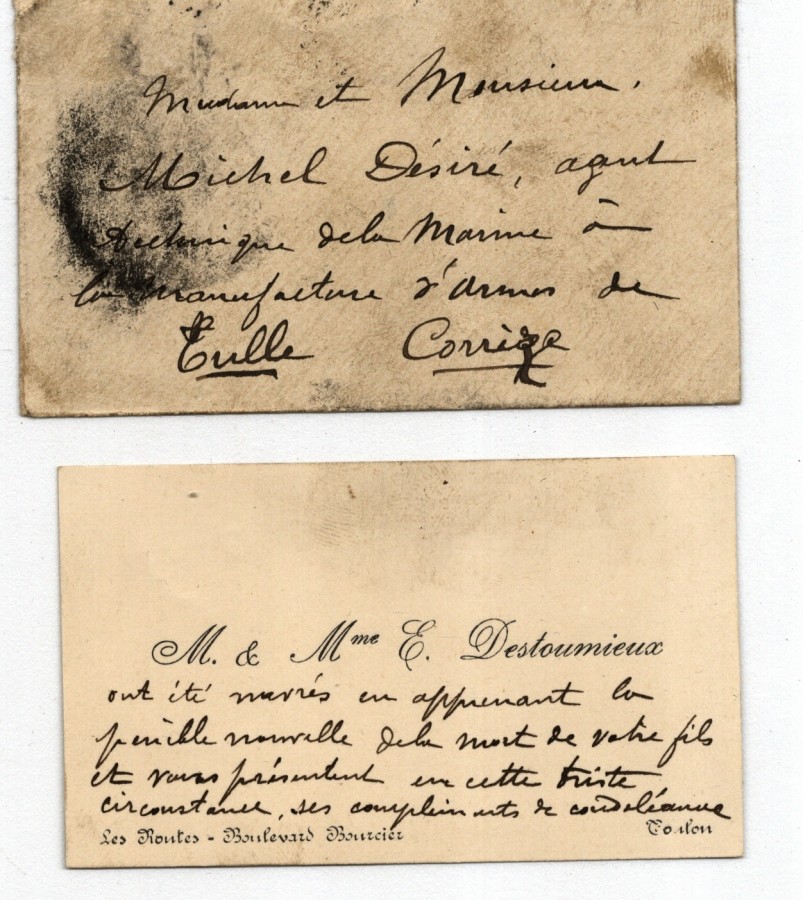 Madame et Monsieur.
Michel Désiré, agent
technique de la Marine à
la manufacture d'armes de
Tulle Corrèze
M. & Mme E. Destoumieux
ont été navrés en apprenant la
penible nouvelle de la mort de votre fils
et vous présentent en cette triste
circonstance, ses compliments de condoléance
Les Routes - Boulevard Bourcier Toulon